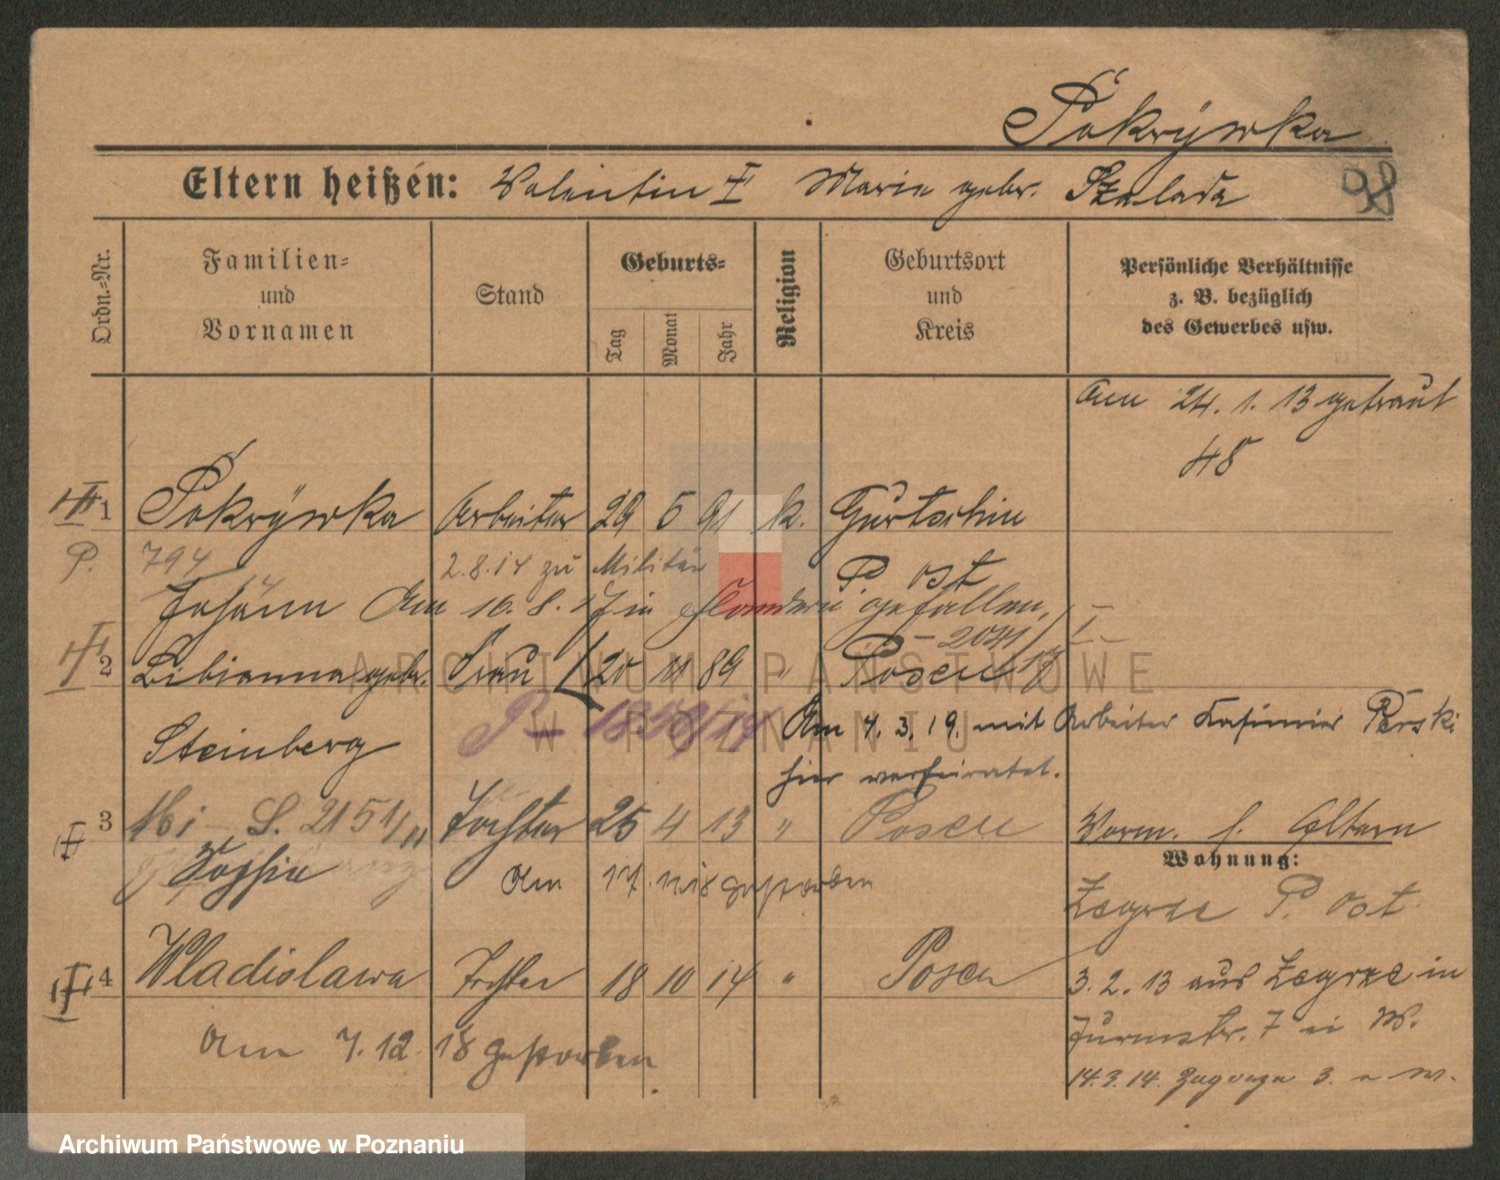 Pokrywka
Eltern heißen: Valentin † Marie gebr. Szkulada
98
Ordn.-Nr.
Familien- und Vornamen
Stand
Geburts-
Tag
Monat
Jahr
Religion
Geburtsort und Kreis
Persönliche Verhältnisse
z. B. bezüglich
des Gewerbes usw.
Am 24. 1. 13 getraut
48
1 Pokrywka Arbeiter 29 5 91 k. Gurtschin
P. 794 2.8.14 zu Militär P. Ost
Johann Am 16. 8. 17 in Flandern gefallen,
2041/17 I.
2 Bibianna gebr. Frau 20 11 89 " Posen
Steinberg Am 4. 3. 19. mit Arbeiter Kasimir Perski
hier verheiratet.
3 S. 2151/11 Tochter 25 4 13 " Posen Vorm. s. Eltern
Wohnung:
Sophie Am 17. 12. 18 gestorben
Zegrze P. Ost.
4 Wladislawa Tochter 18 10 14 " Posen
3. 2. 13 aus Zegrze in
Turmstr. 7 in W.
Am 7. 12. 18 gestorben
14.3.14. Zagrze 3.
ARCHIWUM PAŃSTWOWE
W POZNANIU
Archiwum Państwowe w Poznaniu